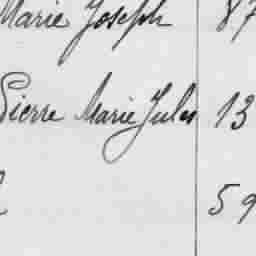 Marie Joseph 87
Pierre Marie Jules 13
59